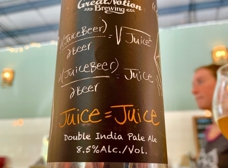 Great Notion
Brewing
∂(JuiceBeer) = √Juice
∂beer
∂(JuiceBeer) = Juice
∂beer
Juice = Juice
Double India Pale Ale
8.5% Alc./Vol.